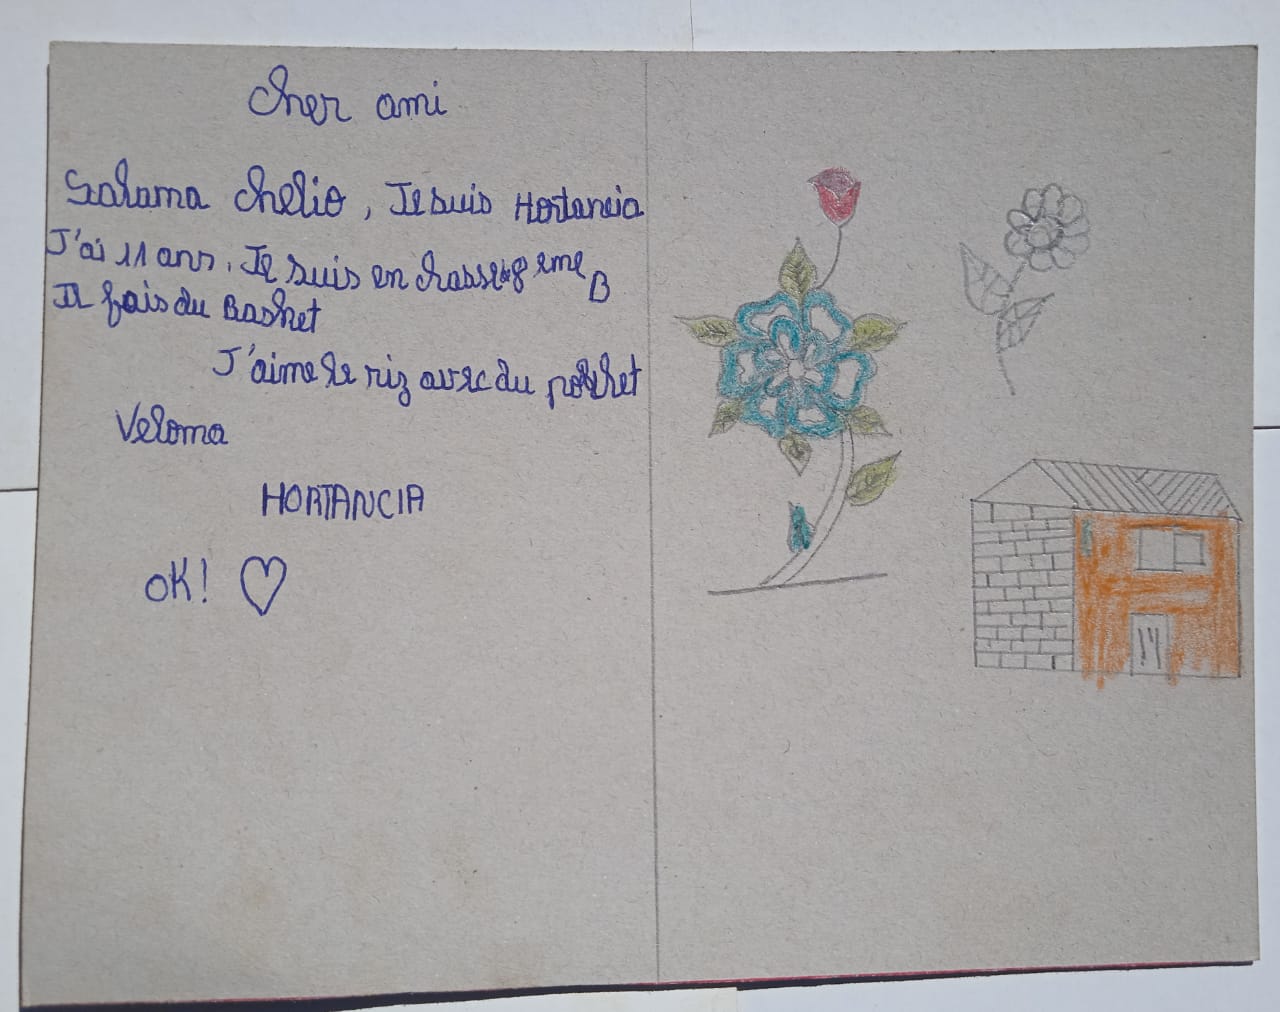 Cher ami
Salama Chelio, Je suis Hortancia
J'ai 11 ans, Je suis en classe 8eme B
Je fais du Basket
J'aime le riz avec du poulet
Veloma
HORTANCIA
OK! ♡